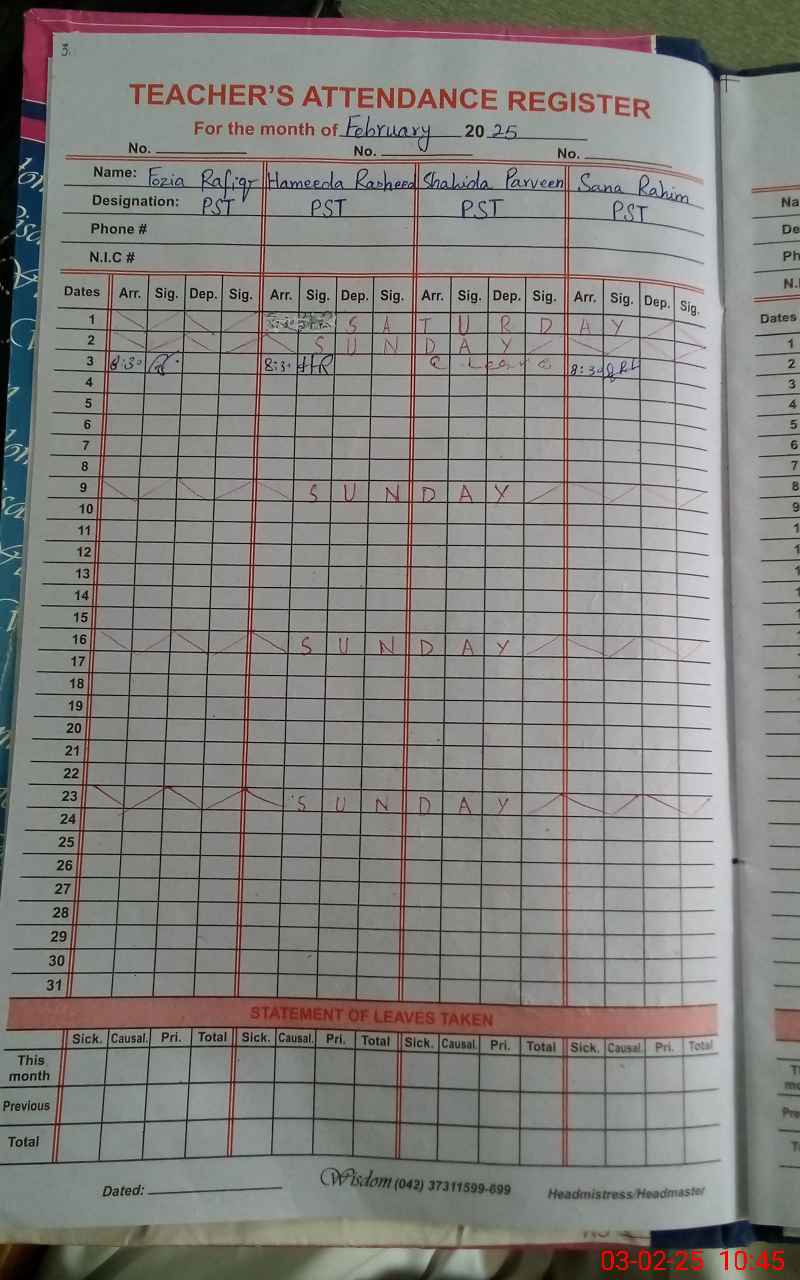 3.
TEACHER'S ATTENDANCE REGISTER
For the month of February 20 25
No. No. No.
Name: Fozia Rafiqr Hameeda Rasheed Shahida Parveen Sana Rahim
Designation: PST PST PST PST
Phone #
N.I.C #
Dates Arr. Sig. Dep. Sig. Arr. Sig. Dep. Sig. Arr. Sig. Dep. Sig. Arr. Sig. Dep. Sig.
1 S A T U R D A Y
2 S U N D A Y
3 8:30 8:30 HR Leave 8:30
4
5
6
7
8
9 S U N D A Y
10
11
12
13
14
15
16 S U N D A Y
17
18
19
20
21
22
23 S U N D A Y
24
25
26
27
28
29
30
31
STATEMENT OF LEAVES TAKEN
Sick. Causal. Pri. Total Sick. Causal. Pri. Total Sick. Causal. Pri. Total Sick. Causal. Pri. Total
This month
Previous
Total
Dated: Wisdom (042) 37311599-699 Headmistress/Headmaster
Na
De
Ph
N.I
Dates
1
2
3
4
5
6
7
8
9
03-02-25 10:45